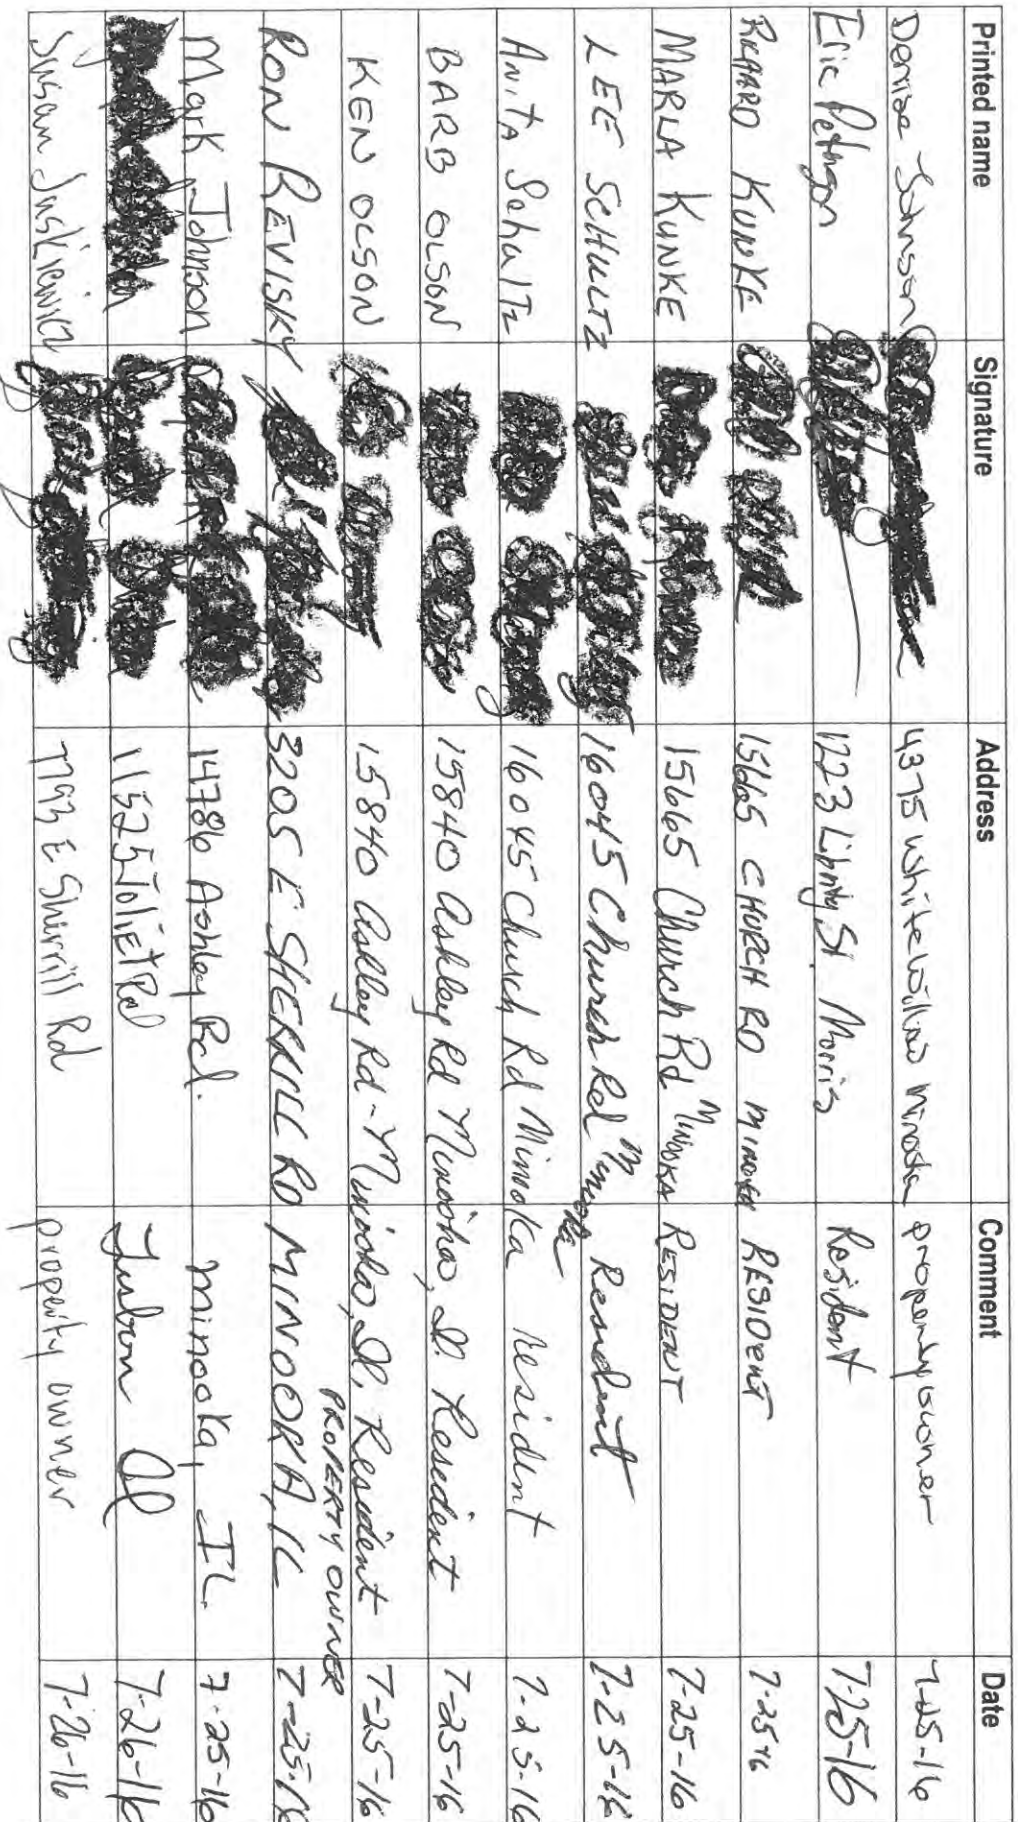 Printed name Signature Address Comment Date
Denise Johnson 4375 White Willow Minooka property owner 7-25-16
Eric 1223 Liberty St. Morris Resident 7-25-16
RICHARD KUNKE 15665 CHURCH RD MINOOKA RESIDENT 7-25-16
MARLA KUNKE 15665 Church Rd MINOOKA RESIDENT 7-25-16
LEE SCHULTZ 16045 Church Rd Minooka Resident 7-25-16
ANITA SchulTz 16045 Church Rd Minooka resident 7-25-16
BARB OLSON 15840 Ashley Rd Minooka, Il. Resident 7-25-16
KEN OLSON 15840 Ashley Rd - Minooka, Il. Resident 7-25-16
PROPERTY OWNER
RON REVISKY 3205 E SHERRILL RD MINOOKA, IL 7-25-16
Mark Johnson 14786 Ashley Rd. Minooka, IL. 7-25-16
11525 Joliet Rd 7-26-16
Susan Jaskiewicz 7793 E Sherrill Rd property owner 7-26-16